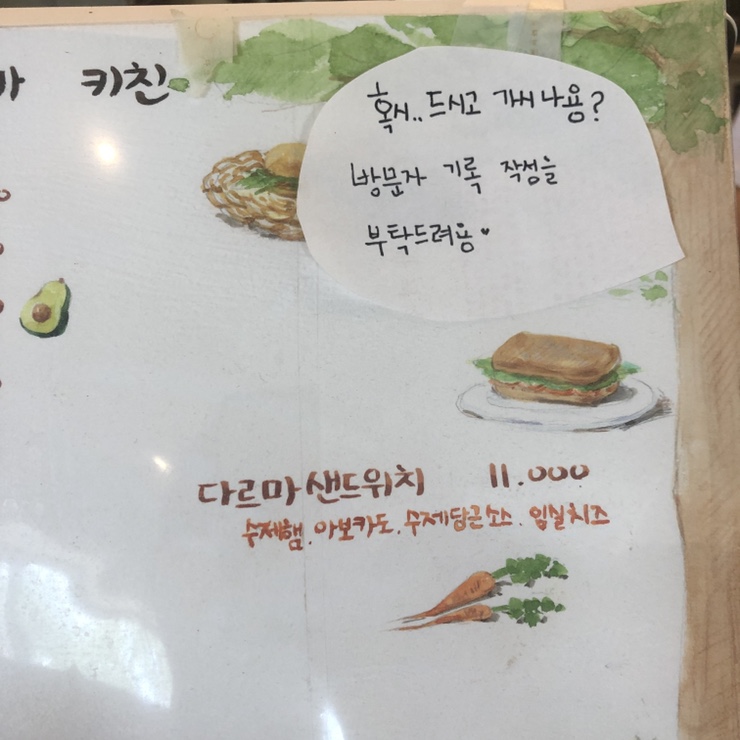 키친
혹시.. 드시고 가시나용?
방문자 기록 작성을
부탁드려용♥
다르마 샌드위치 11.000
수제햄. 아보카도. 수제당근소스. 임실치즈